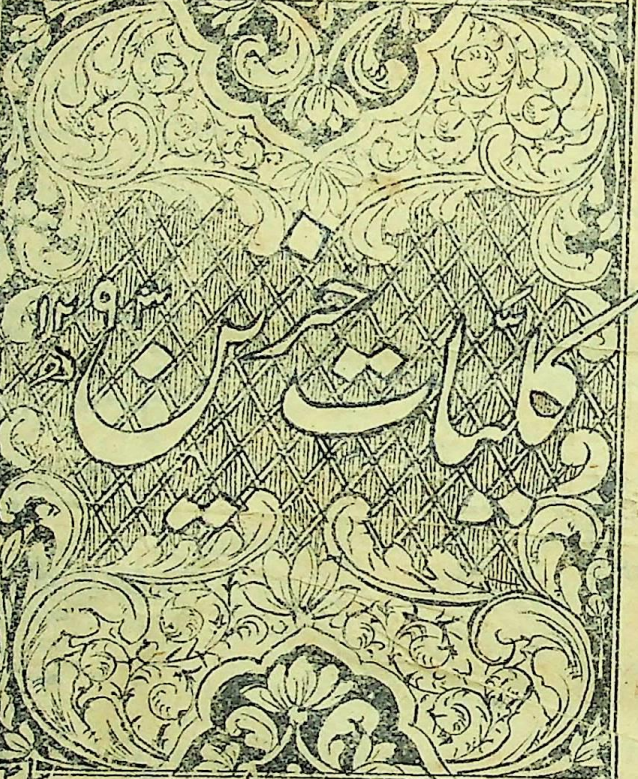 کلیات حزین ۱۲۹۳ھ